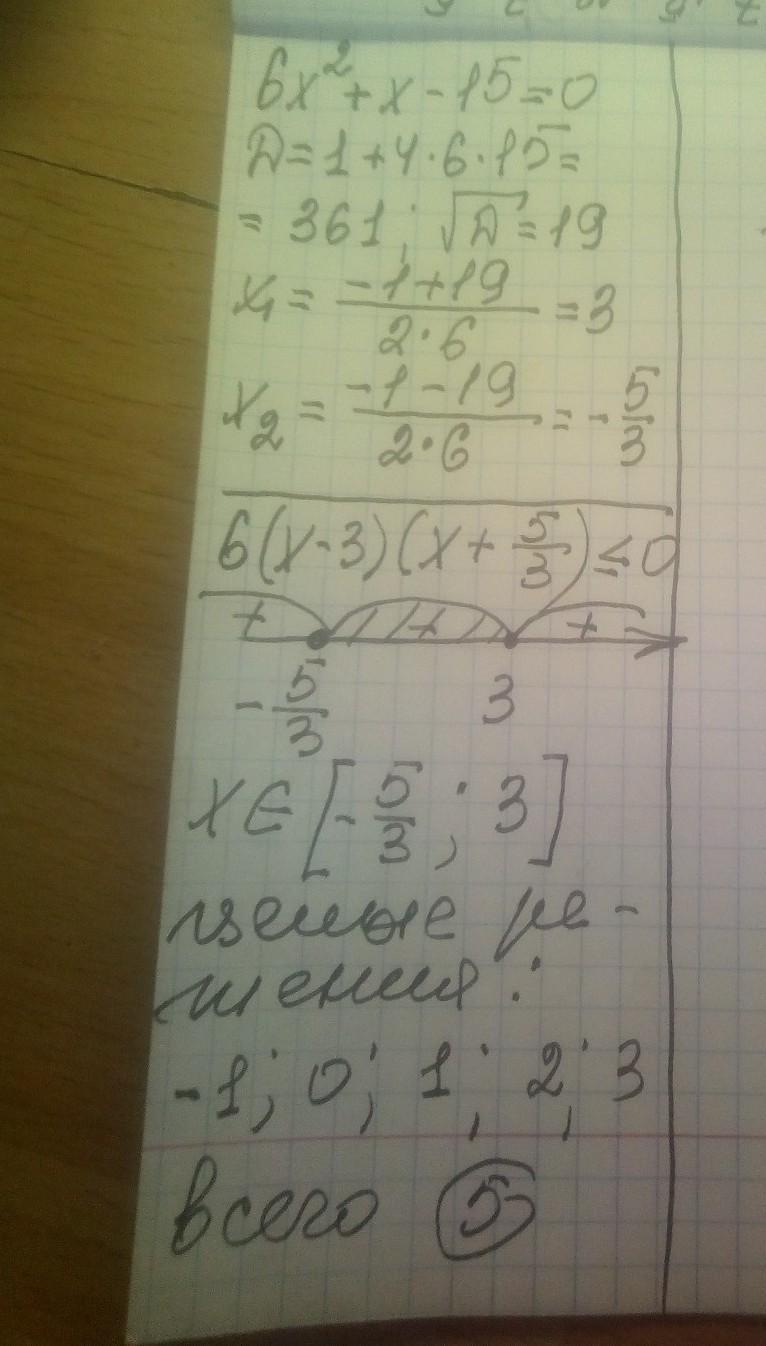 6x² + x - 15 = 0
D = 1 + 4·6·15 =
= 361; √D = 19
x₁ = (-1+19)/(2·6) = 3
x₂ = (-1-19)/(2·6) = -5/3
6(x-3)(x+5/3) ≤ 0
+ + +
-5/3 3
x ∈ [-5/3; 3]
целые ре-
шения:
-1; 0; 1; 2; 3
всего 5